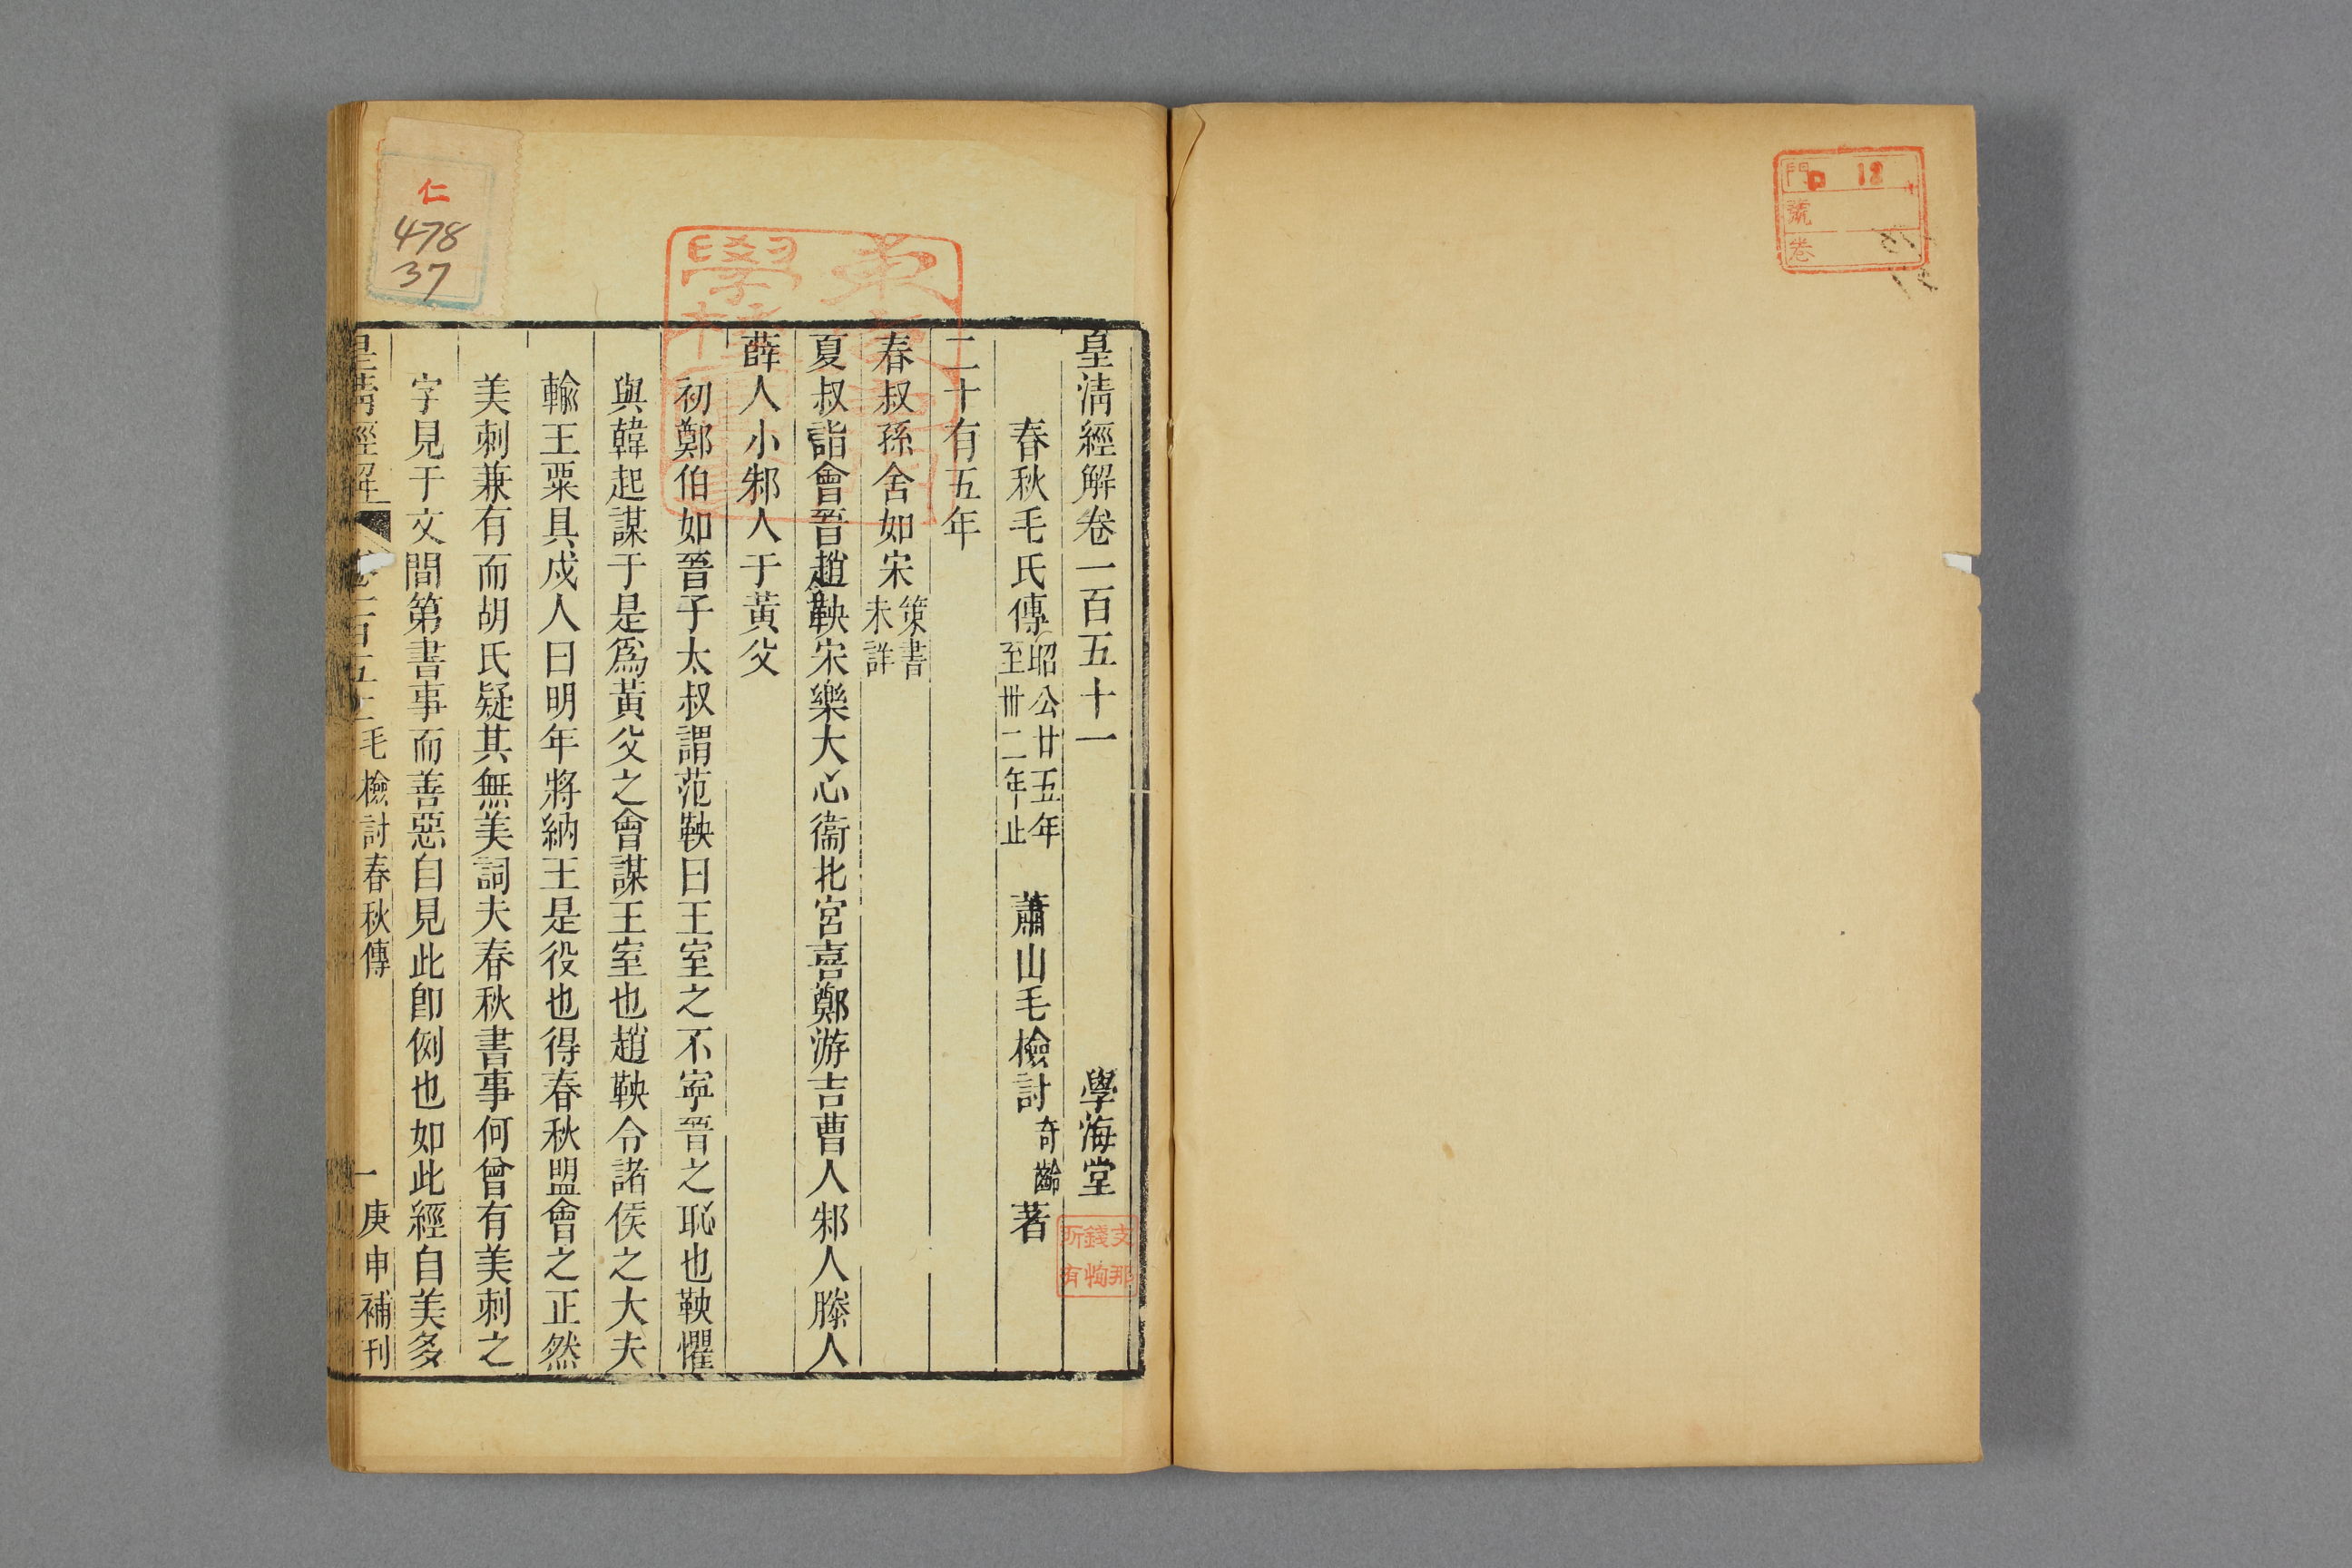 門 P 18
號
卷
皇淸經解卷一百五十一
學海堂
春秋毛氏傳昭公廿五年至卅二年止
蕭山毛檢討奇齡著
二十有五年
春叔孫舍如宋策書未詳
夏叔詣會晉趙鞅宋樂大心衞北宮喜鄭游吉曹人邾人滕人
薛人小邾人于黃父
初鄭伯如晉子太叔謂范鞅曰王室之不寧晉之恥也鞅懼
與韓起謀于是爲黃父之會謀王室也趙鞅令諸侯之大夫
輸王粟具戍人曰明年將納王是役也得春秋盟會之正然
美刺兼有而胡氏疑其無美詞夫春秋書事何曾有美刺之
字見于文間第書事而善惡自見此卽例也如此經自美多
皇淸經解
卷一百五十一毛檢討春秋傳
一
庚申補刊
支那
錢物
所有
仁
478
37